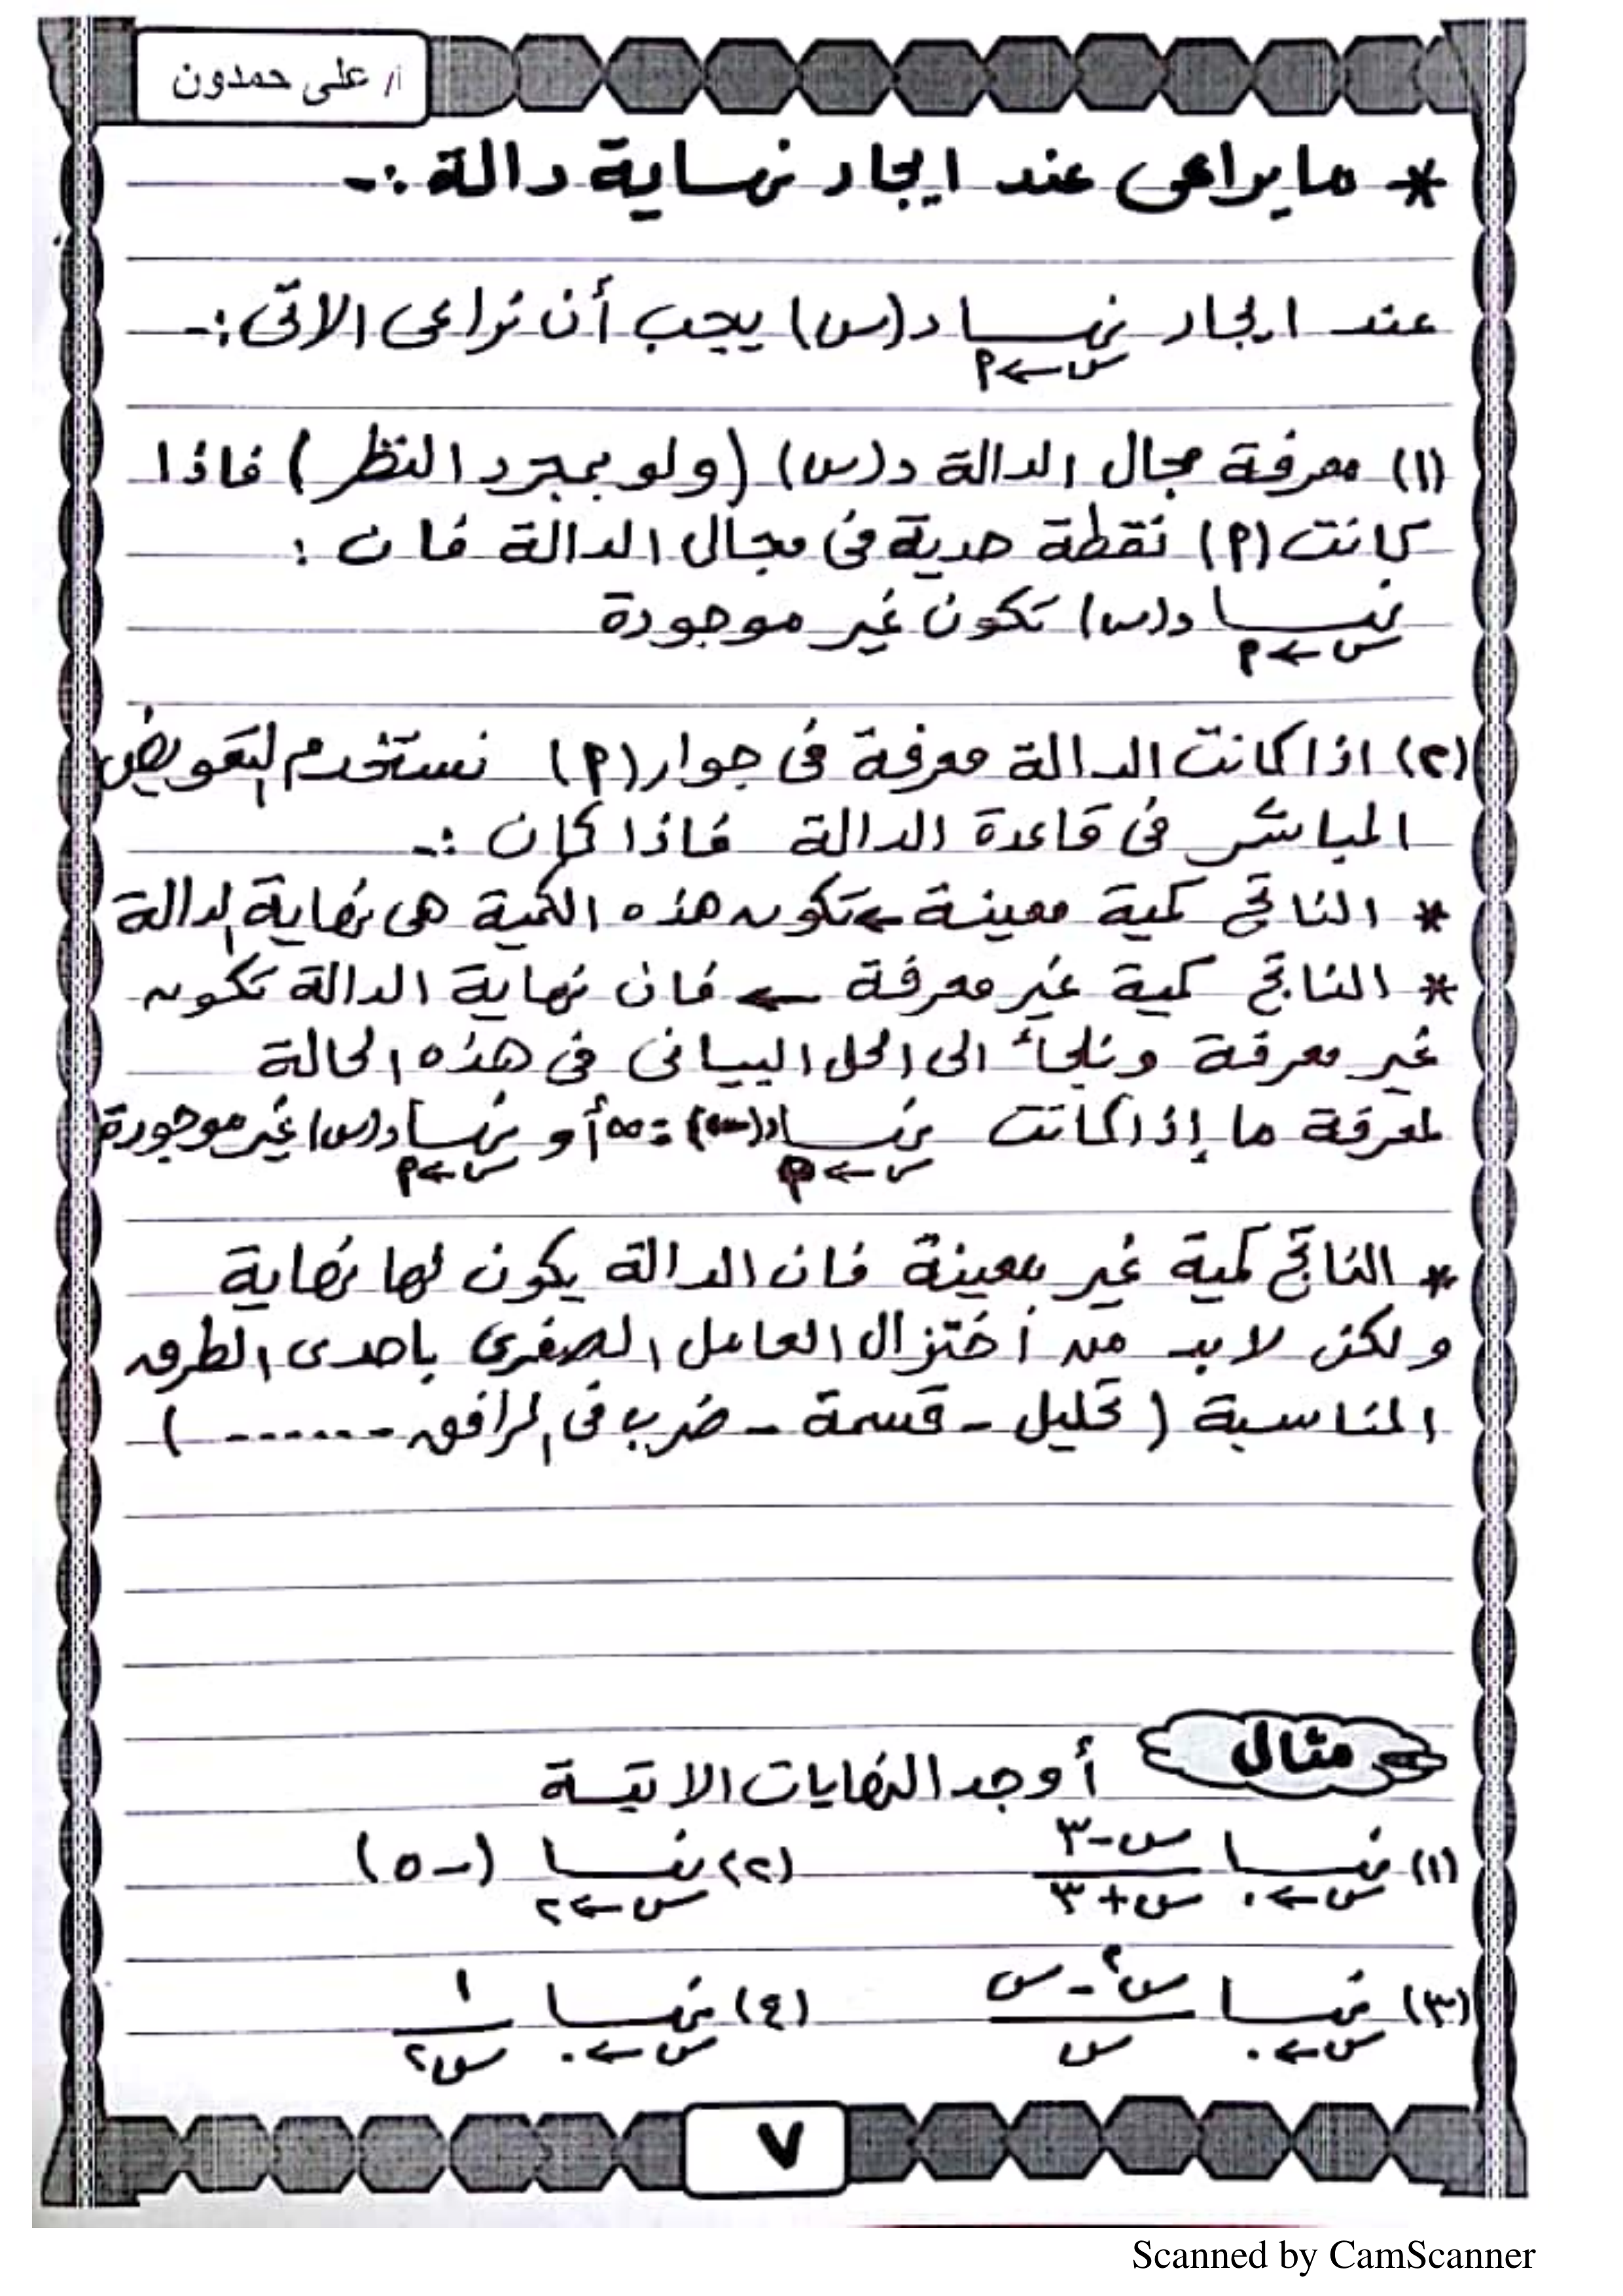 أ/ على حمدون
* ما يراعى عند ايجاد نهاية دالة :-
عند ايجاد نهــا د(س) يجب أن نراعى الاتى :-
س←٢
(١) معرفة مجال الدالة د(س) (ولو بمجرد النظر) فاذا
كانت (٢) نقطة حدية فى مجال الدالة فان :
نهــا د(س) تكون غير موجودة
س←٢
(٢) اذا كانت الدالة معرفة فى جوار (٢) نستخدم التعويض
المباشر فى قاعدة الدالة فاذا كان :-
* الناتج كمية معينة ← تكون هذه الكمية هى نهاية الدالة
* الناتج كمية غير معرفة ← فان نهاية الدالة تكون
غير معرفة ونلجأ الى الحل البيانى فى هذه الحالة
لمعرفة ما إذا كانت نهــا د(س) = ∞ أو نهــا د(س) غير موجودة
س←٢ س←٢
* الناتج كمية غير معينة فان الدالة يكون لها نهاية
ولكن لابد من أختزال العامل الصفرى باحدى الطرق
المناسبة ( تحليل - قسمة - ضرب فى المرافق - ...... )
مثال
أوجد النهايات الاتيـة
(١) نهــا س-٣ / س+٣ (٢) نهــا (-٥)
س←٠ س←٢
(٣) نهــا س٢ - س / س (٤) نهــا ١ / س٢
س←٠ س←٠
٧
Scanned by CamScanner